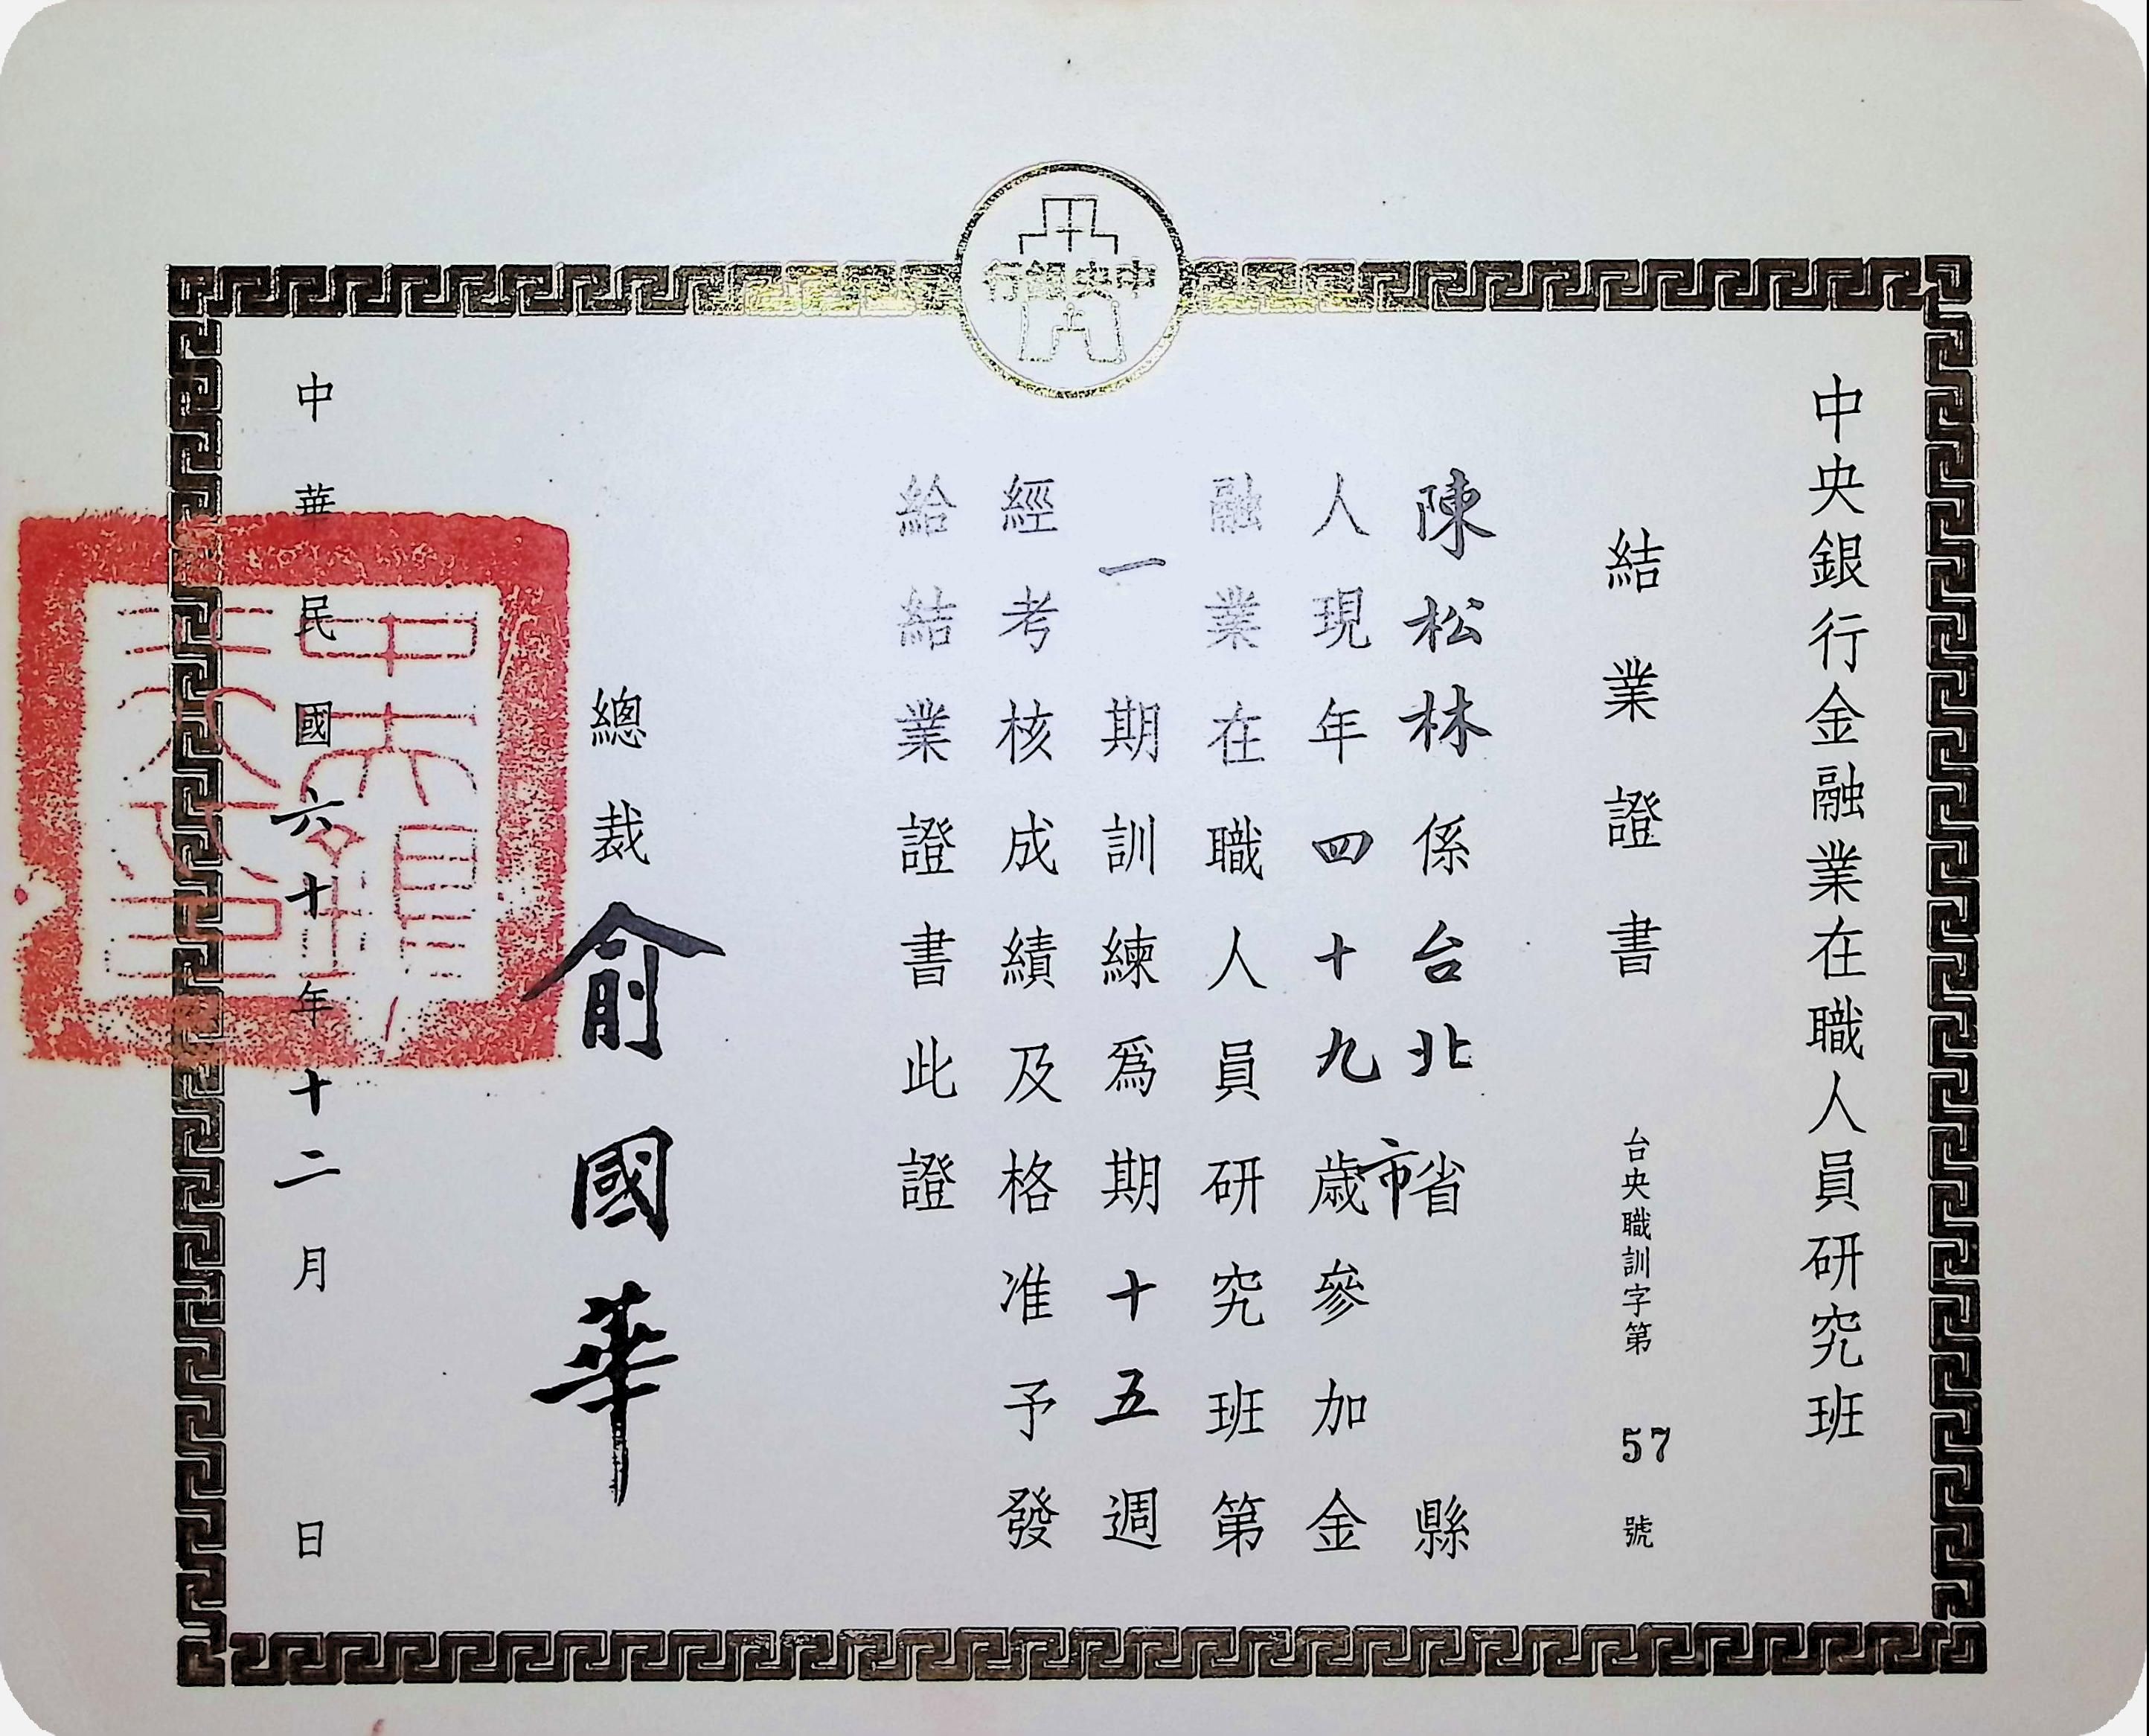 中央銀行
中央銀行金融業在職人員研究班
結業證書
台央職訓字第 57 號
陳松林係台北省市 縣
人現年四十九歲參加金
融業在職人員研究班第
一期訓練爲期十五週
經考核成績及格准予發
給結業證書此證
總裁 俞國華
中華民國六十年十二月 日